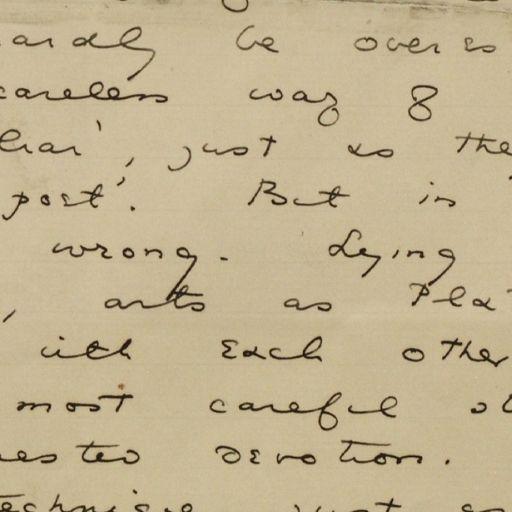 ardly be over es
careless way 8
liar', just as the
poet'. But in
wrong. Lying
, arts as Pla
with each other
most careful st
rested devotion.
technique, just as